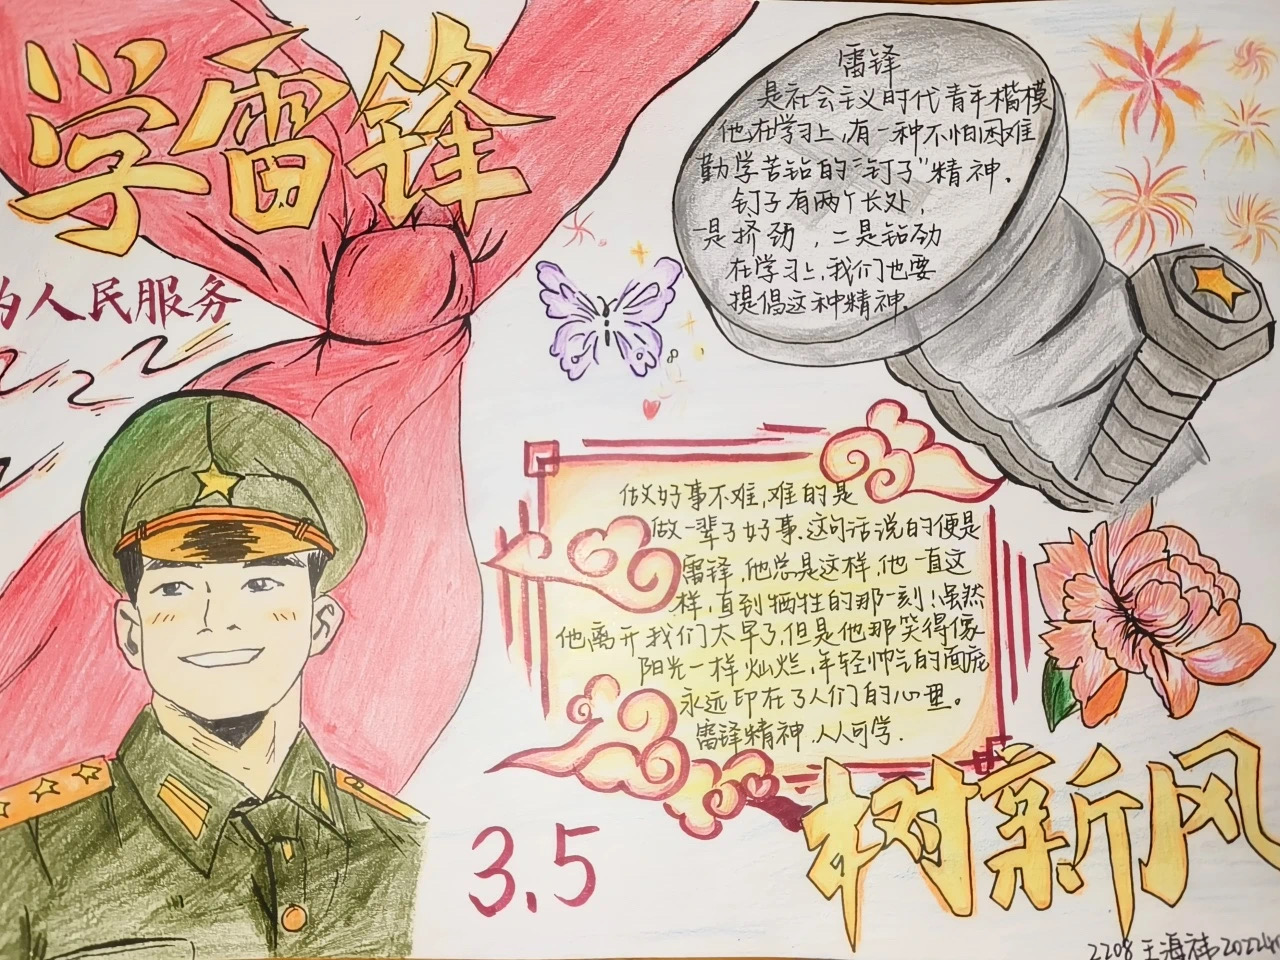 学雷锋
为人民服务
雷锋
是社会主义时代青年楷模
他在学习上,有一种不怕困难
勤学苦钻的“钉子”精神.
钉子有两个长处,
一是挤劲,二是钻劲
在学习上,我们也要
提倡这种精神.
做好事不难,难的是
做一辈子好事.这句话说的便是
雷锋,他总是这样,他一直这
样,直到牺牲的那一刻!虽然
他离开我们太早了,但是他那笑得像
阳光一样灿烂,年轻帅气的面庞
永远印在了人们的心里。
雷锋精神.人人可学.
3.5
树新风
2208 王海祎